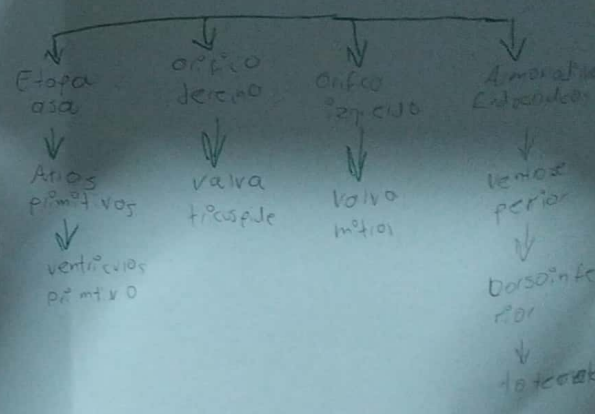 Etapa
asa
Atios
primitivos
ventriculos
primtivo
orifico
derecho
valva
tricuspide
orifico
izquierdo
valva
mitral
ventose
perior
Dorsoinfe
rior